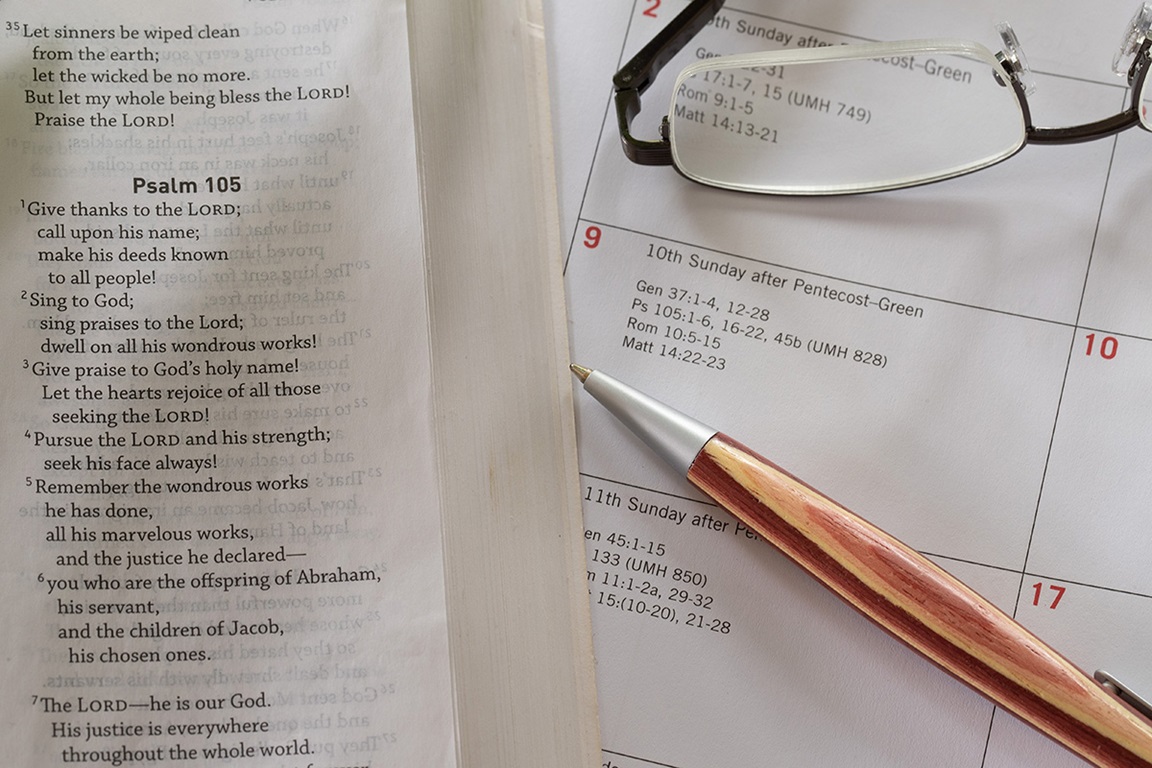 35 Let sinners be wiped clean
from the earth;
let the wicked be no more.
But let my whole being bless the LORD!
Praise the LORD!
Psalm 105
1 Give thanks to the LORD;
call upon his name;
make his deeds known
to all people!
2 Sing to God;
sing praises to the Lord;
dwell on all his wondrous works!
3 Give praise to God's holy name!
Let the hearts rejoice of all those
seeking the LORD!
4 Pursue the LORD and his strength;
seek his face always!
5 Remember the wondrous works
he has done,
all his marvelous works,
and the justice he declared—
6 you who are the offspring of Abraham,
his servant,
and the children of Jacob,
his chosen ones.
7 The LORD—he is our God.
His justice is everywhere
throughout the whole world.
2
Sunday after
cost–Green
Gen
2-31
17:1-7, 15 (UMH 749)
Rom 9:1-5
Matt 14:13-21
9
10th Sunday after Pentecost–Green
Gen 37:1-4, 12-28
Ps 105:1-6, 16-22, 45b (UMH 828)
Rom 10:5-15
Matt 14:22-23
10
11th Sunday after Pe
en 45:1-15
133 (UMH 850)
m 11:1-2a, 29-32
15:(10-20), 21-28
17